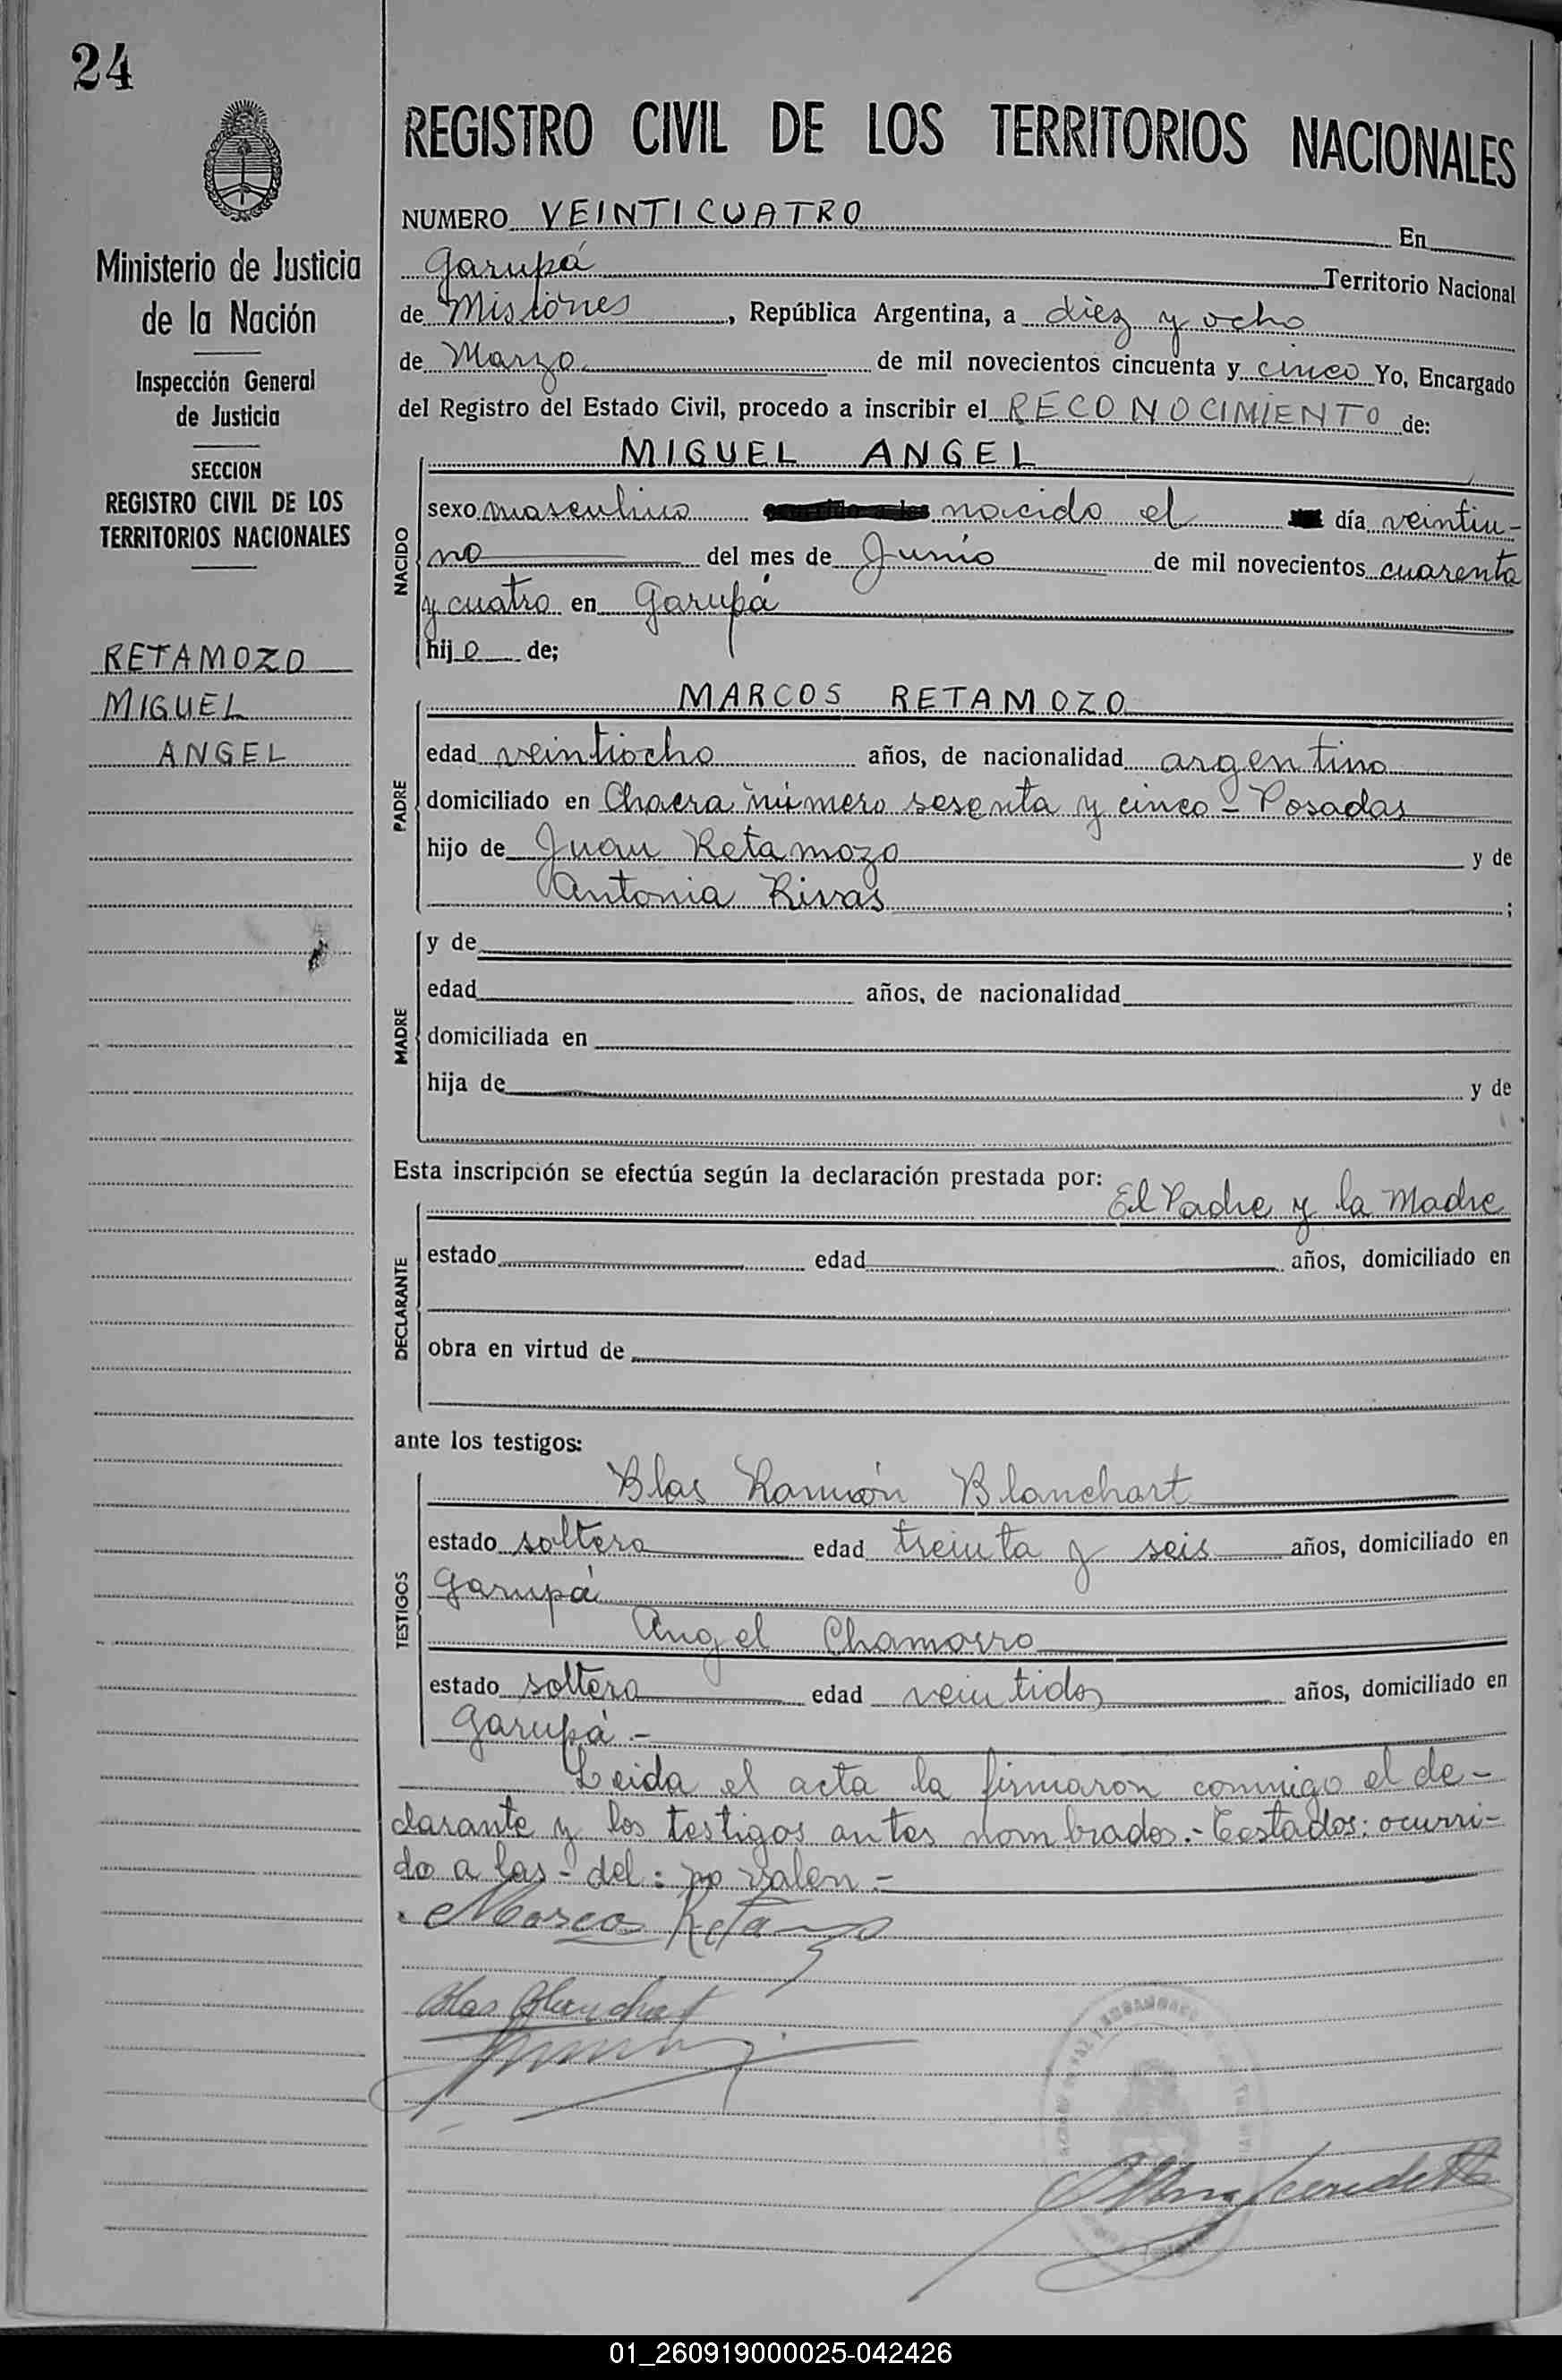 24
REGISTRO CIVIL DE LOS TERRITORIOS NACIONALES
Ministerio de Justicia
de la Nación
Inspección General
de Justicia
SECCION
REGISTRO CIVIL DE LOS
TERRITORIOS NACIONALES
RETAMOZO
MIGUEL
ANGEL
NUMERO VEINTICUATRO En
Garupá Territorio Nacional
de Misiones, República Argentina, a diez y ocho
de Marzo de mil novecientos cincuenta y cinco Yo, Encargado
del Registro del Estado Civil, procedo a inscribir el RECONOCIMIENTO de:
MIGUEL ANGEL
NACIDO
sexo masculino nacido el día veintiu-
no del mes de Junio de mil novecientos cuarenta
y cuatro en Garupá
hijo de;
MARCOS RETAMOZO
PADRE
edad veintiocho años, de nacionalidad argentino
domiciliado en Chacra número sesenta y cinco - Posadas
hijo de Juan Retamozo y de
Antonia Rivas ;
MADRE
y de
edad años, de nacionalidad
domiciliada en
hija de y de
Esta inscripción se efectúa según la declaración prestada por:
El Padre y la Madre
DECLARANTE
estado edad años, domiciliado en
obra en virtud de
ante los testigos:
Blas Ramón Blanchart
TESTIGOS
estado soltero edad treinta y seis años, domiciliado en
Garupá
Angel Chamorro
estado soltero edad veintidos años, domiciliado en
Garupá.-
Leida el acta la firmaron conmigo el de-
clarante y los testigos antes nombrados.- Testados: ocurri-
do a las - del: no valen.-
Marcos Retamozo
Blas Blanchart
01_260919000025-042426